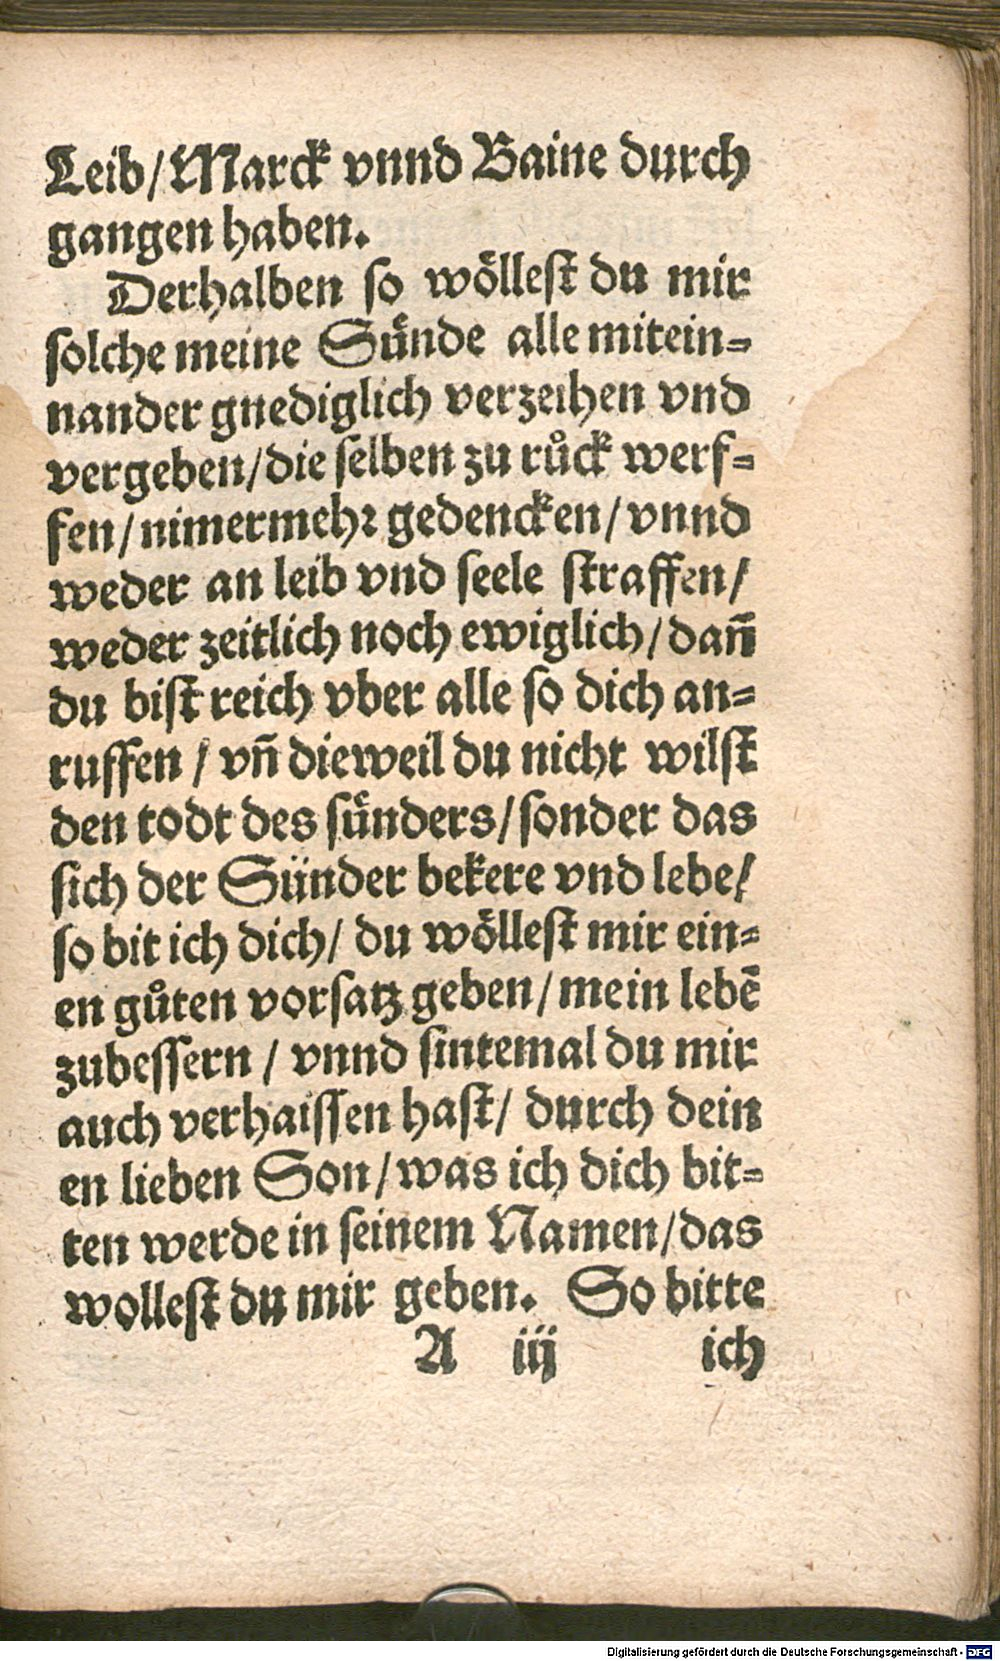 Leib/Marck vnnd Baine durch
gangen haben.
Derhalben so wöllest du mir
solche meine Sünde alle mitein-
nander gnediglich verzeihen vnd
vergeben/die selben zu růck werf-
fen/nimermehr gedencken/vnnd
weder an leib vnd seele straffen/
weder zeitlich noch ewiglich/dañ
du bist reich vber alle so dich an-
ruffen/vñ dieweil du nicht wilst
den todt des sünders/sonder das
sich der Sünder bekere vnd lebe/
so bit ich dich/ du wöllest mir ein-
en gůten vorsatz geben/mein lebē
zubessern/ vnnd sintemal du mir
auch verhaissen hast/ durch dein
en lieben Son/was ich dich bit-
ten werde in seinem Namen/das
wollest du mir geben. So bitte
A iij ich
Digitalisierung gefördert durch die Deutsche Forschungsgemeinschaft - DFG